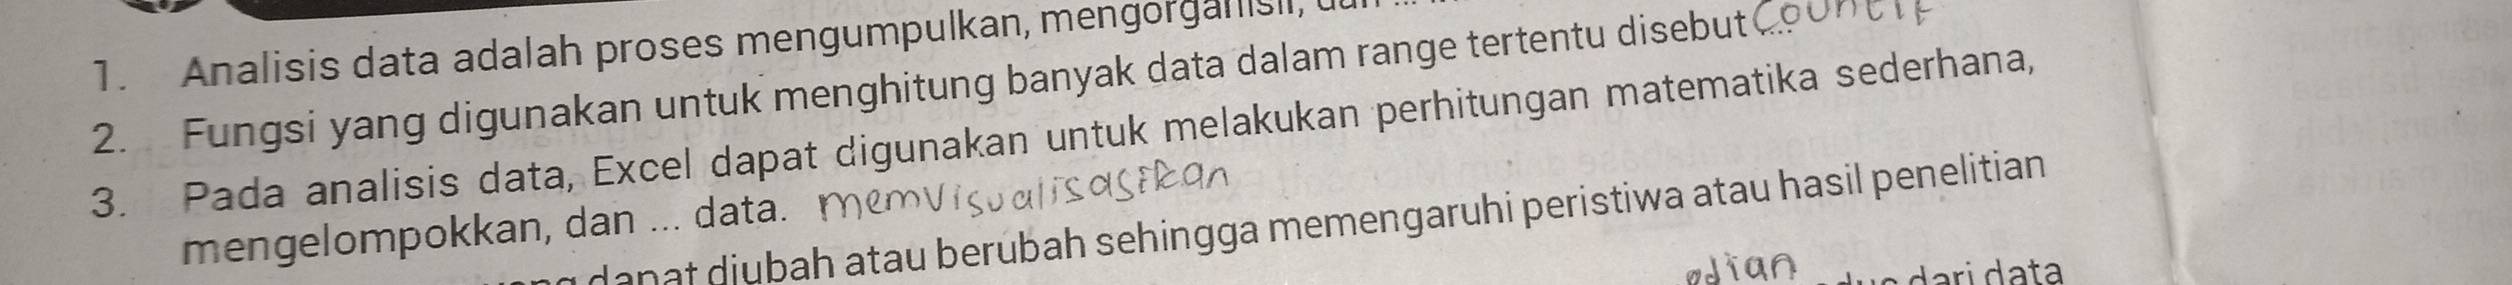 1. Analisis data adalah proses mengumpulkan, mengorganisir,
2. Fungsi yang digunakan untuk menghitung banyak data dalam range tertentu disebut ... Countif
3. Pada analisis data, Excel dapat digunakan untuk melakukan perhitungan matematika sederhana,
mengelompokkan, dan ... data. memvisualisasikan
dapat diubah atau berubah sehingga memengaruhi peristiwa atau hasil penelitian
dari data